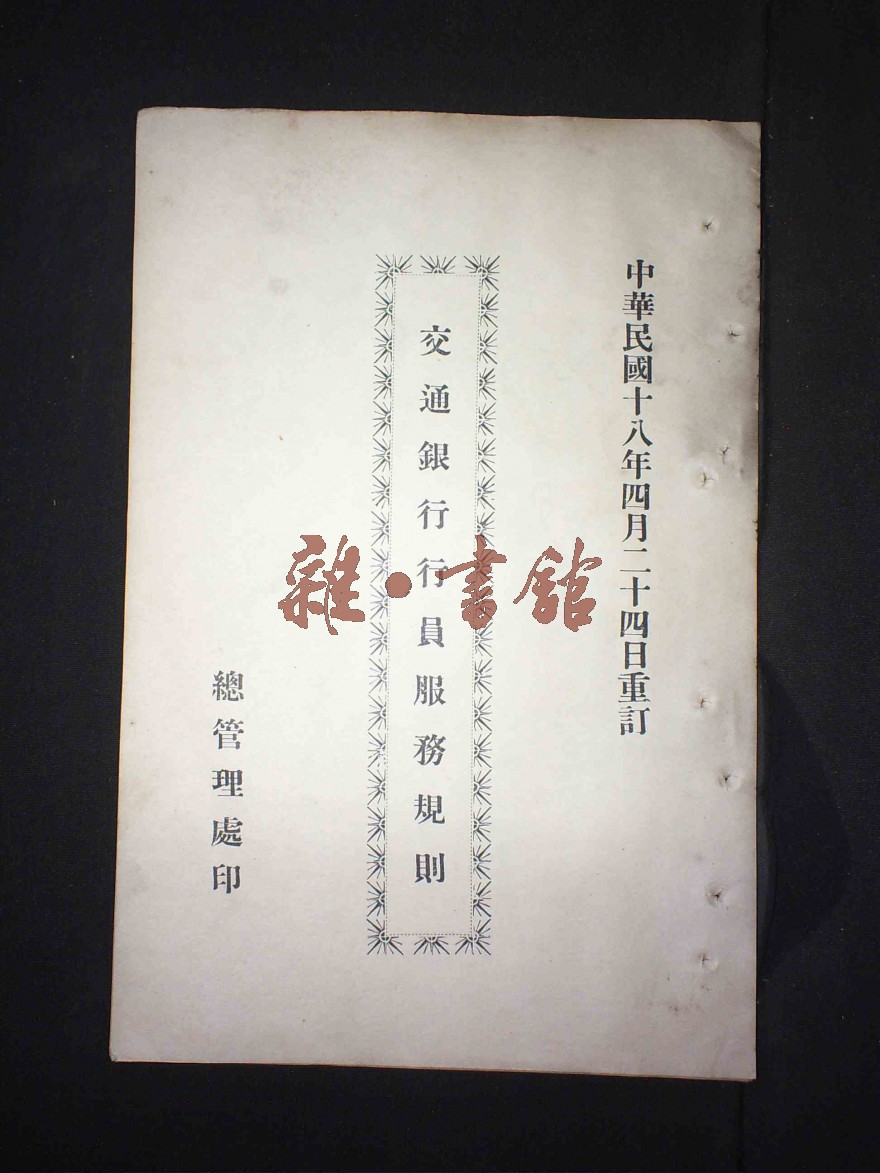 中華民國十八年四月二十四日重訂
交通銀行行員服務規則
總管理處印
雜·書館